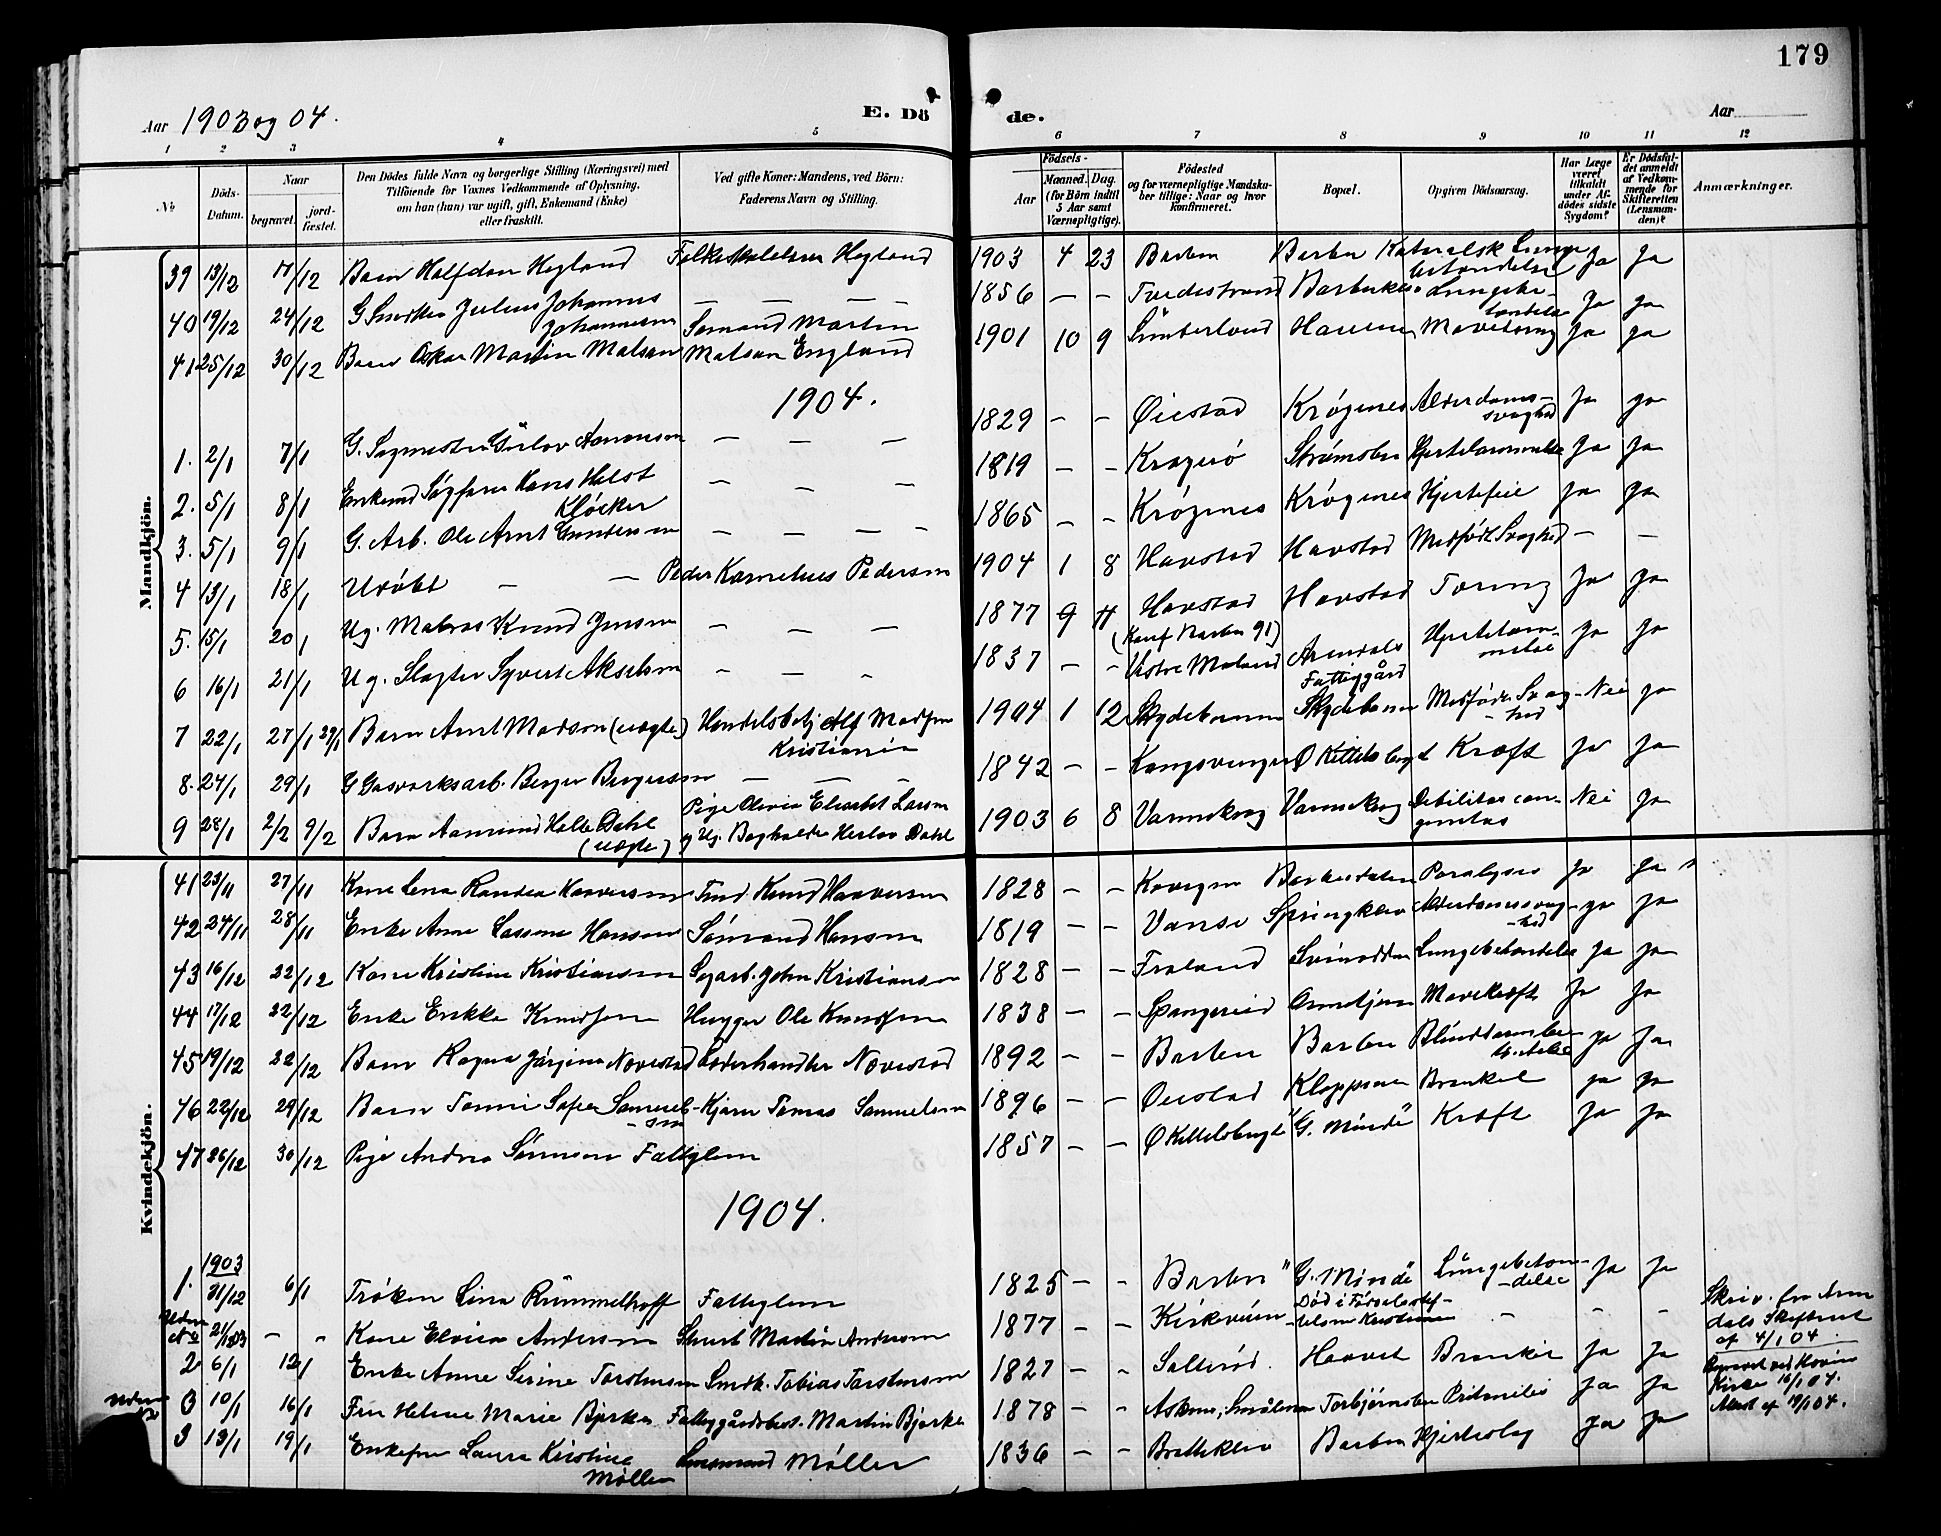 179
Aar 1903 og 04.
E. Dö de.
Aar
1 2 3 4 5 6 7 8 9 10 11 12
№
Döds-Datum.
Naar
begravet.
jord-fæstet.
Den Dödes fulde Navn og borgerlige Stilling (Næringsvei) med
Tilföiende for Voxnes Vedkommende af Oplysning,
om han (hun) var ugift, gift, Enkemand (Enke)
eller fraskilt.
Ved gifte Koner: Mandens, ved Börn:
Faderens Navn og Stilling.
Födsels-
Aar
Maaned. Dag.
(for Börn indtil
5 Aar samt
Værnepligtige).
Födested
og for værnepligtige Mandska-
ber tillige: Naar og hvor
konfirmeret.
Bopæl.
Opgiven Dödsaarsag.
Har Læge
været
tilkaldt
under Af-
dödes sidste
Sygdom?
Er Dödsfal-
det anmeldt
af Vedkom-
mende for
Skifteretten
(Lensman-
den)?
Anmærkninger.
Mandkjön.
39 13/12 17/12 Barn Halfdan Hegland Hegland 1903 4 23 Barbu Barbu Kataralsk Lunge betændelse Ja Ja
40 19/12 24/12 G. Snedker Julius Johannes Johannesen — — — — 1856 — — Tvedestrand Lungebetændelse Ja Ja
41 25/12 30/12 Barn Oskar Martin Matson Sømand Martin Matson England 1901 10 9 Sunderland Mavetæring Ja Ja
1904.
1. 2/1 7/1 G. Sagmester Aanonsen — — — 1829 — — Øiestad Krøgenes Alderdomssvaghed Ja Ja
2. 5/1 8/1 Enkemd Søgfører Hans Holst Kløcker — — — 1819 — — Kragerø Strømsbu Hjertelammelse Ja Ja
3. 5/1 9/1 G. Arb. Ole Arnt Gundersen — — — — 1865 — — Krøgenes Krøgenes Hjertefeil Ja Ja
4 13/1 18/1 Udøbt — — Peder Kornelius Pedersen 1904 1 8 Havstad Havstad Medfødt Svaghed — —
5. 15/1 20/1 Ug. Matros Knud Jensen — — — 1877 9 Havstad (Konf Barbu 91) Havstad Tæring Ja Ja
6 16/1 21/1 Ug. Slagter Syvert Akselsen — — — 1837 — — Østre Moland Arendals Fattiggård Hjertelammelse Ja Ja
7 22/1 27/1 29/1 Barn Arnt Madson (uægte) Handelsbetj Alf Madsen Kristiania 1904 1 12 Skydebanen Skydebanen Medfødt Svaghed Nei Ja
8. 24/1 29/1 G Gasværksarb. Berger Bergersen — — — 1842 — — Kongsvinger Ø Kittelsbugt Kræft Ja Ja
9 28/1 2/2 9/2 Barn Aamund Helle Dahl (uægte) Pige Olivia Elisabet Larsen og Ug. Bogholder Herlov Dahl 1903 6 8 Vannskog Vannskog Debilitas congenitas Nei Ja
Kvindekjön.
41 23/11 27/11 Kone Lena Randea Haaversen Knud Haaversen 1828 — — Barbudalen Paralysis Ja Ja
42 24/11 28/11 Enke Anne Hansen Sømand Hansen 1819 — — Vanse Springklev Alderdomssvaghed Ja Ja
43 16/12 22/12 Kone Kristine Kristiansen Sagarb. John Kristiansen 1828 — — Froland Svinodden Lungebetændelse Ja Ja
44 17/12 22/12 Enke Erikke Knudsen Hugger Ole Knudsen 1838 — — Spangereid Mavekræft Ja Ja
45 19/12 22/12 Barn Ragna Jørgine Novestad Læderhandler Novestad 1892 — — Barbu Barbu Blindtarmsbetændelse Ja Ja
46 22/12 29/12 Barn Tomine Sofie Samuelsen Tomas Samuelsen 1896 — — Øiestad Kloppene Bronkit Ja Ja
47 26/12 30/12 Pige Andrea Fattiglem 1857 — — Ø Kittelsbugt "G. Minde" Kræft Ja Ja
1904.
1. 1903 31/12 6/1 Frøken Lina Rummelhoff Fattiglem 1825 — — Barbu "G. Minde" Lungebetændelse Ja Ja
Uden № 21/1903 — — Kone Elvira Andersen Martin Andersen 1877 — — Død i Fødselsstiftelsen Kristiania — — — Skriv. fra Arendals Skifteret af 4/1 04
2 6/1 12/1 Enke Anne Serine Torstensen Snedk. Tobias Torstensen 1827 — — Salterød. Haavet Bronkit Ja Ja
Uden № 10/1 16/1 Fru Helene Marie Bjerke Fattiggårdsbest. Martin Bjerke 1878 — — Torbjørnsbu Ja Ja Begravet ved Kirke 16/1 04. 19/1 04.
3 13/1 19/1 Enkefru Laura Kirstine Møller Møller 1836 — — Bratteklev Barbu Hjerteslag Ja Ja